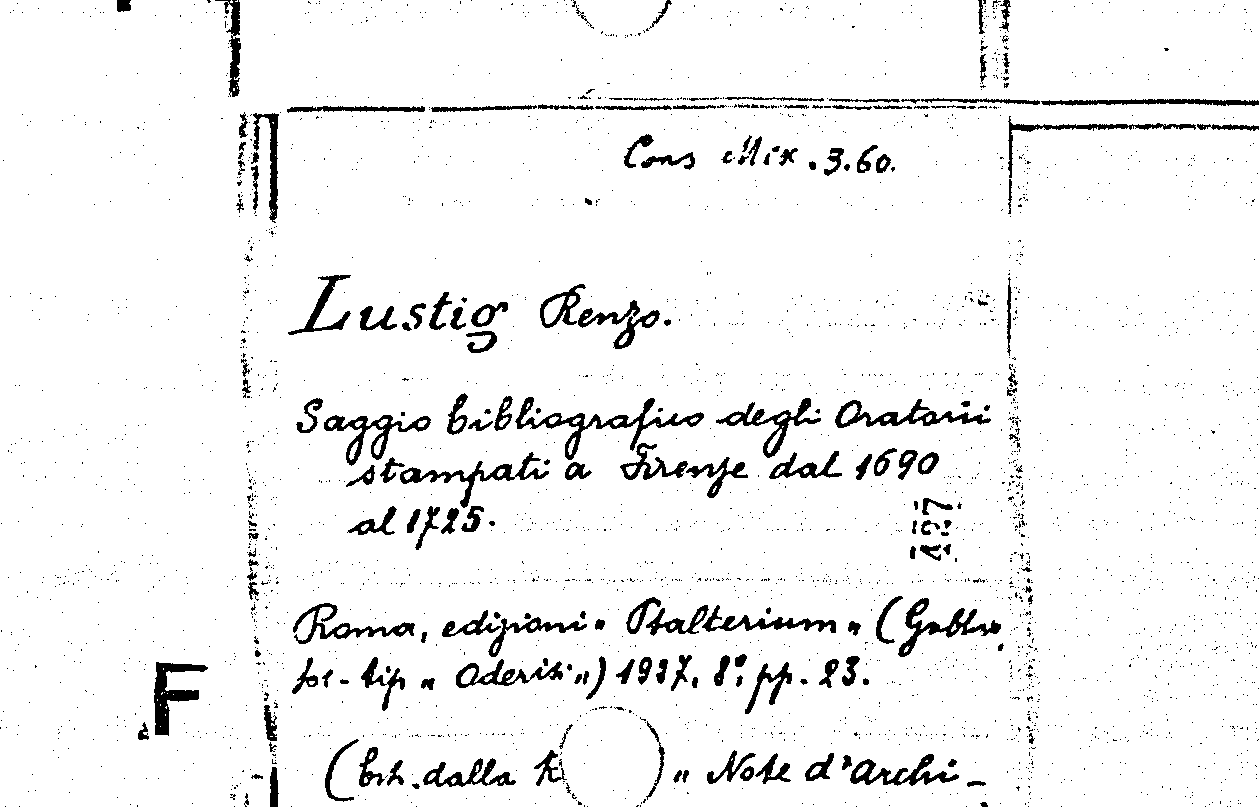 Cons Mix. 3.60.
Lustig Renzo.
Saggio bibliografico degli Oratorii
stampati a Firenze dal 1690
al 1725.
197
Roma, edizioni " Psalterium " (Gubbio,
soc- tip " Oderisi ") 1937. 8º, pp. 23.
F
(Estr. dalla " Note d'Archi-